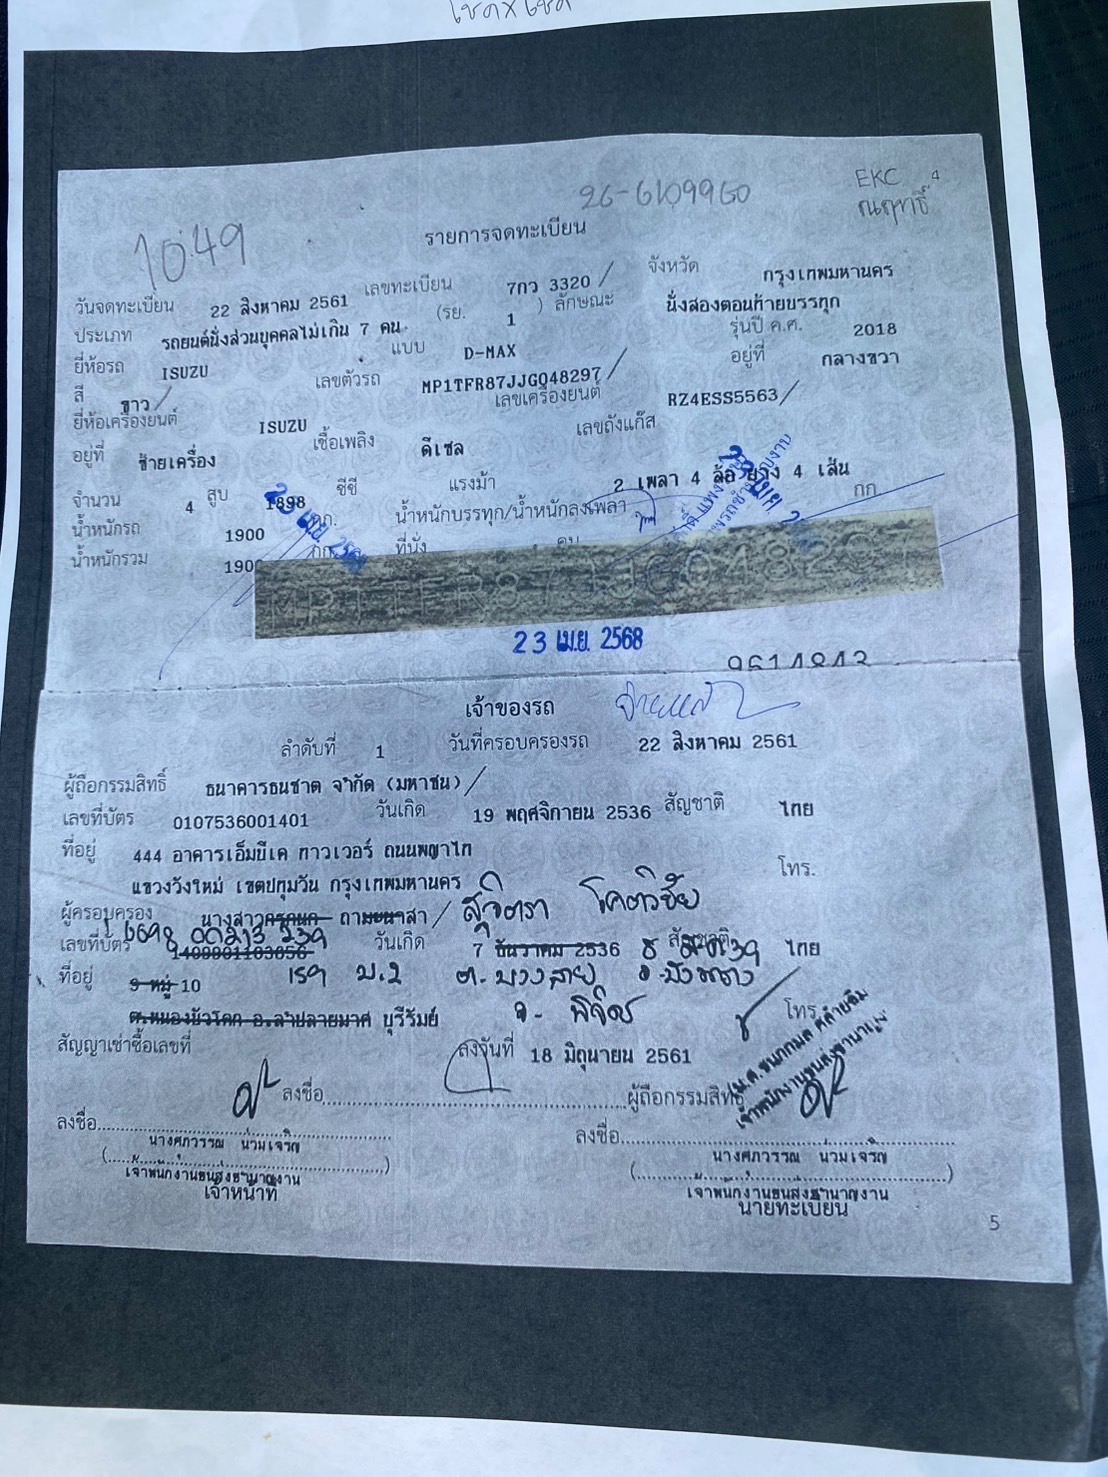 26-6109960
EKC
ณฤทธิ์
10.49
รายการจดทะเบียน
วันจดทะเบียน 22 สิงหาคม 2561 เลขทะเบียน 7กว 3320 / จังหวัด กรุงเทพมหานคร
ประเภท รถยนต์นั่งส่วนบุคคลไม่เกิน 7 คน (รย. 1 ) ลักษณะ นั่งสองตอนท้ายบรรทุก
ยี่ห้อรถ ISUZU แบบ D-MAX รุ่นปี ค.ศ. 2018
สี ขาว / เลขตัวรถ MP1TFR87JJG048297 / อยู่ที่ กลางขวา
ยี่ห้อเครื่องยนต์ ISUZU เลขเครื่องยนต์ RZ4ESS5563 /
อยู่ที่ ซ้ายเครื่อง เชื้อเพลิง ดีเซล เลขถังแก๊ส
จำนวน 4 สูบ 1898 ซีซี แรงม้า 2 เพลา 4 ล้อ ยาง 4 เส้น
น้ำหนักรถ 1900 กก. น้ำหนักบรรทุก/น้ำหนักลงเพลา กก.
น้ำหนักรวม 1900 กก. ที่นั่ง คน
23 เม.ย. 2568
9614843
เจ้าของรถ
ลำดับที่ 1 วันที่ครอบครองรถ 22 สิงหาคม 2561
ผู้ถือกรรมสิทธิ์ ธนาคารธนชาต จำกัด (มหาชน) /
เลขที่บัตร 0107536001401 วันเกิด 19 พฤศจิกายน 2536 สัญชาติ ไทย
ที่อยู่ 444 อาคารเอ็มบีเค ทาวเวอร์ ถนนพญาไท
แขวงวังใหม่ เขตปทุมวัน กรุงเทพมหานคร โทร.
ผู้ครอบครอง นางสาว / สุจิตรา โคตวิชัย
เลขที่บัตร วันเกิด 7 ธันวาคม 2536 สัญชาติ ไทย
ที่อยู่ 9 หมู่ 10 ม.2
ต.หนองบัวโคก อ.ลำปลายมาศ บุรีรัมย์ จ. พิจิตร โทร.
สัญญาเช่าซื้อเลขที่ ลงวันที่ 18 มิถุนายน 2561
ลงชื่อ ผู้ถือกรรมสิทธิ์
ลงชื่อ ลงชื่อ
(นางศุภวรรณ น่วมเจริญ) (นางศุภวรรณ น่วมเจริญ)
เจ้าพนักงานขนส่งชำนาญงาน เจ้าพนักงานขนส่งชำนาญงาน
เจ้าหน้าที่ นายทะเบียน
5